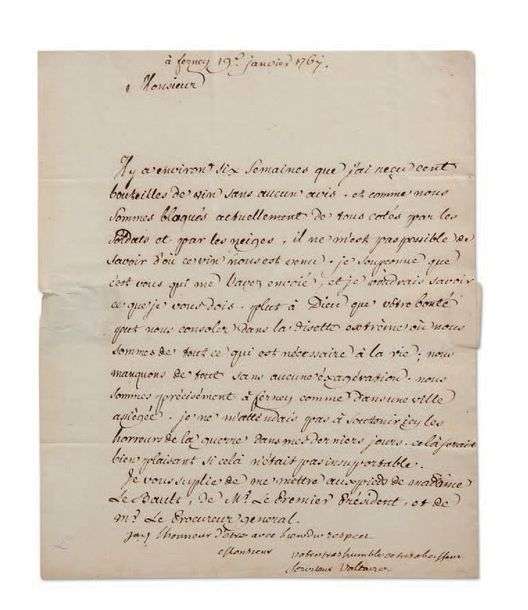 à ferney 19e janvier 1767.
Monsieur
Il y a environ six semaines que j'ai reçu cent
bouteilles de vin sans aucun avis. et comme nous
sommes bloqués actuellement de tous cotés par les
soldats et par les neiges, il ne m'est pas possible de
savoir d'où ce vin nous est venu. je soupçonne que
c'est vous qui me l'avez envoié, et je voudrais savoir
ce que je vous dois. plut à Dieu que vôtre bonté
put nous consoler dans la disette extrème où nous
sommes de tout ce qui est nécessaire à la vie; nous
manquons de tout sans aucune éxagération. nous
sommes précisément à ferney comme dans une ville
assiégée. je ne m'attendais pas à soutenir icy les
horreurs de la guerre dans mes derniers jours. celà serait
bien plaisant si celà n'était pas insuportable.
Je vous suplie de me mettre aux pieds de madame
Le Bault, de Mr. Le Premier Président, et de
mr. Le Procureur général.
jay l'honneur d'etre avec bien du respect
Monsieur votre tres humble et tres obeissant
serviteur Voltaire